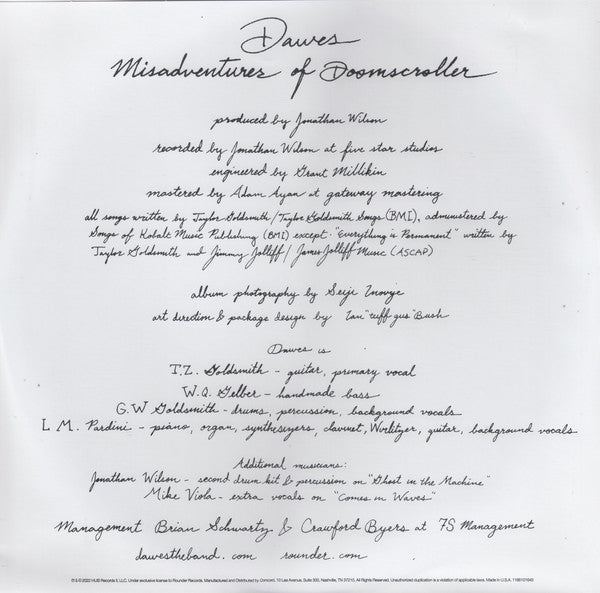 Dawes
Misadventures of Doomscroller
produced by Jonathan Wilson
recorded by Jonathan Wilson at five star studios
engineered by Grant Millikin
mastered by Adam Ayan at gateway mastering
all songs written by Taylor Goldsmith/Taylor Goldsmith Songs (BMI), administered by
Songs of Kobalt Music Publishing (BMI) except "Everything is Permanent" written by
Taylor Goldsmith and Jimmy Jolliff/James Jolliff Music (ASCAP)
album photography by Seije Inouye
art direction & package design by Ian "tuff gus" Bush
Dawes is
T.Z. Goldsmith - guitar, primary vocal
W.Q. Gelber - handmade bass
G.W Goldsmith - drums, percussion, background vocals
L.M. Pardini - piano, organ, synthesizers, clavinet, Wurlitzer, guitar, background vocals
Additional musicians:
Jonathan Wilson - second drum kit & percussion on "Ghost in the Machine"
Mike Viola - extra vocals on "Comes in Waves"
Management Brian Schwartz & Crawford Byers at 7S Management
dawestheband.com rounder.com
℗ & © 2022 HUB Records II, LLC. Under exclusive license to Rounder Records. Manufactured and Distributed by Concord, 10 Lea Avenue, Suite 300, Nashville, TN 37210. All Rights Reserved. Unauthorized duplication is a violation of applicable laws. Made in U.S.A.